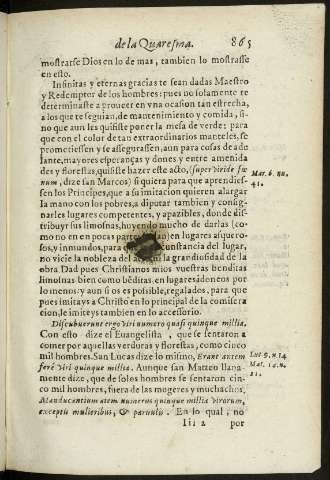 de la Quaresma. 865
mostrarse Dios en lo de mas, tambien lo mostrasse
en esto.
Infinitas y eternas gracias te sean dadas Maestro
y Redemptor de los hombres: pues no solamente te
determinaste a proueer en vna ocasion tan estrecha,
a los que te seguian, de mantenimiento y comida, si-
no que aun les quisiste poner la mesa de verde: para
que con el color de tan extraordinarios manteles, se
prometiessen y se assegurassen, aun para cosas de ade
lante, mayores esperanças y dones y entre amenida
des y florestas, quisiste hazer este acto, (super viride fœ
num, dize san Marcos) si quiera para que aprendies-
sen los Principes, que a su imitacion quieren alargar
la mano con los pobres, a diputar tambien y consig-
narles lugares competentes, y apazibles, donde dis-
tribuyr sus limosnas, huyendo mucho de darlas (co-
mo no en pocas partes se en lugares asquero-
sos, y inmundos, para cunstancia del lugar,
no vicie la nobleza del la grandiosidad de la
obra Dad pues Christianos mios vuestras benditas
limosnas bien como bēditas, en lugares idoneos por
lo menos: y aun si os es posible, regalados, para que
pues imitays a Christo en lo principal de la comisera
cion, le imiteys tambien en lo accessorio.
Discubuerunt ergo viri numero quasi quinque millia.
Con esto dize el Euangelista, que se sentaron a
comer por aquellas verduras y florestas, como cinco
mil hombres. San Lucas dize lo mismo, Erant autem
ferè viri quinque millia. Aunque san Matteo llana
mente dize, que de solos hombres se sentaron cin-
co mil hombres, fuera de las mogeres y muchachos.
Manducantium autem numerus quinque millia virorum,
exceptis mulieribus, & paruulis. En lo qual, no
Iii 2 por
Mar. 6. nu.
41.
Luc 9. n. 14
Mat. 14. n.
21.